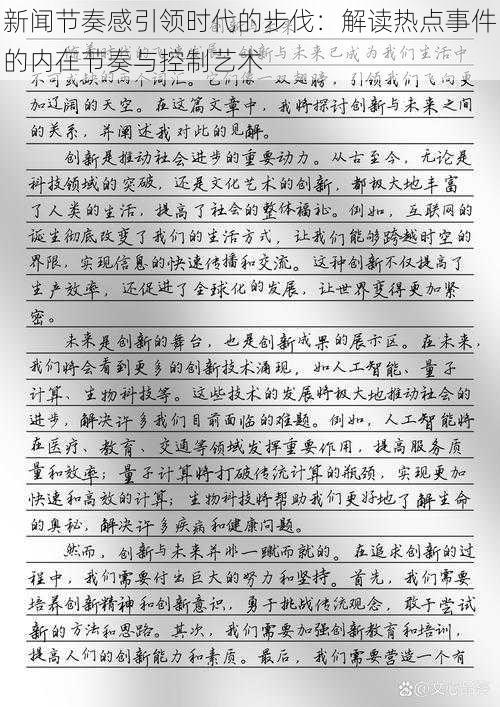 新闻节奏感引领时代的步伐：解读热点事件
的内在节奏与控制艺术
创新与未来已成为我们生活中
不可或缺的两个词汇。它们像一双翅膀，引领我们飞向更
加辽阔的天空。在这篇文章中，我将探讨创新与未来之间
的关系，并阐述我对此的见解。
创新是推动社会进步的重要动力。从古至今，无论是
科技领域的突破，还是文化艺术的创新，都极大地丰富
了人类的生活，提高了社会的整体福祉。例如，互联网的
诞生彻底改变了我们的生活方式，让我们能够跨越时空的
界限，实现信息的快速传播和交流。这种创新不仅提高了
生产效率，还促进了全球化的发展，让世界变得更加紧
密。
未来是创新的舞台，也是创新成果的展示区。在未来，
我们将会看到更多的创新技术涌现，如人工智能、量子
计算、生物科技等。这些技术的发展将极大地推动社会的
进步，解决许多我们目前面临的难题。例如，人工智能将
在医疗、教育、交通等领域发挥重要作用，提高服务质
量和效率；量子计算将打破传统计算的瓶颈，实现更加
快速和高效的计算；生物科技将帮助我们更好地了解生命
的奥秘，解决许多疾病和健康问题。
然而，创新与未来并非一蹴而就的。在追求创新的过
程中，我们需要付出巨大的努力和坚持。首先，我们需要
培养创新精神和创新意识，勇于挑战传统观念，敢于尝试
新的方法和思路。其次，我们需要加强创新教育和培训，
提高人们的创新能力和素质。最后，我们需要营造一个有